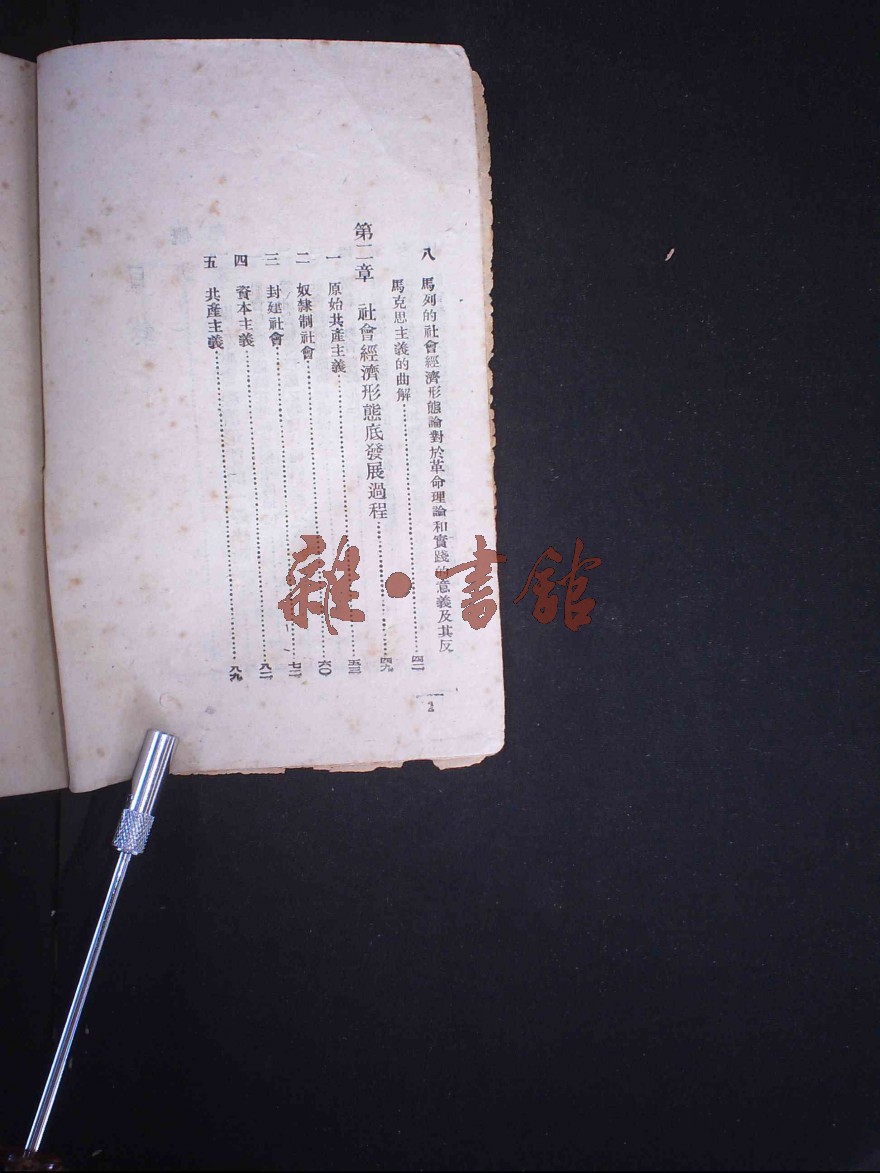 八 馬列的社會經濟形態論對於革命理論和實踐的意義及其反
馬克思主義的曲解……四二
第二章 社會經濟形態底發展過程……四九
一 原始共產主義……五三
二 奴隸制社會……六〇
三 封建社會……七二
四 資本主義……八二
五 共產主義……八九
2
雜·書館